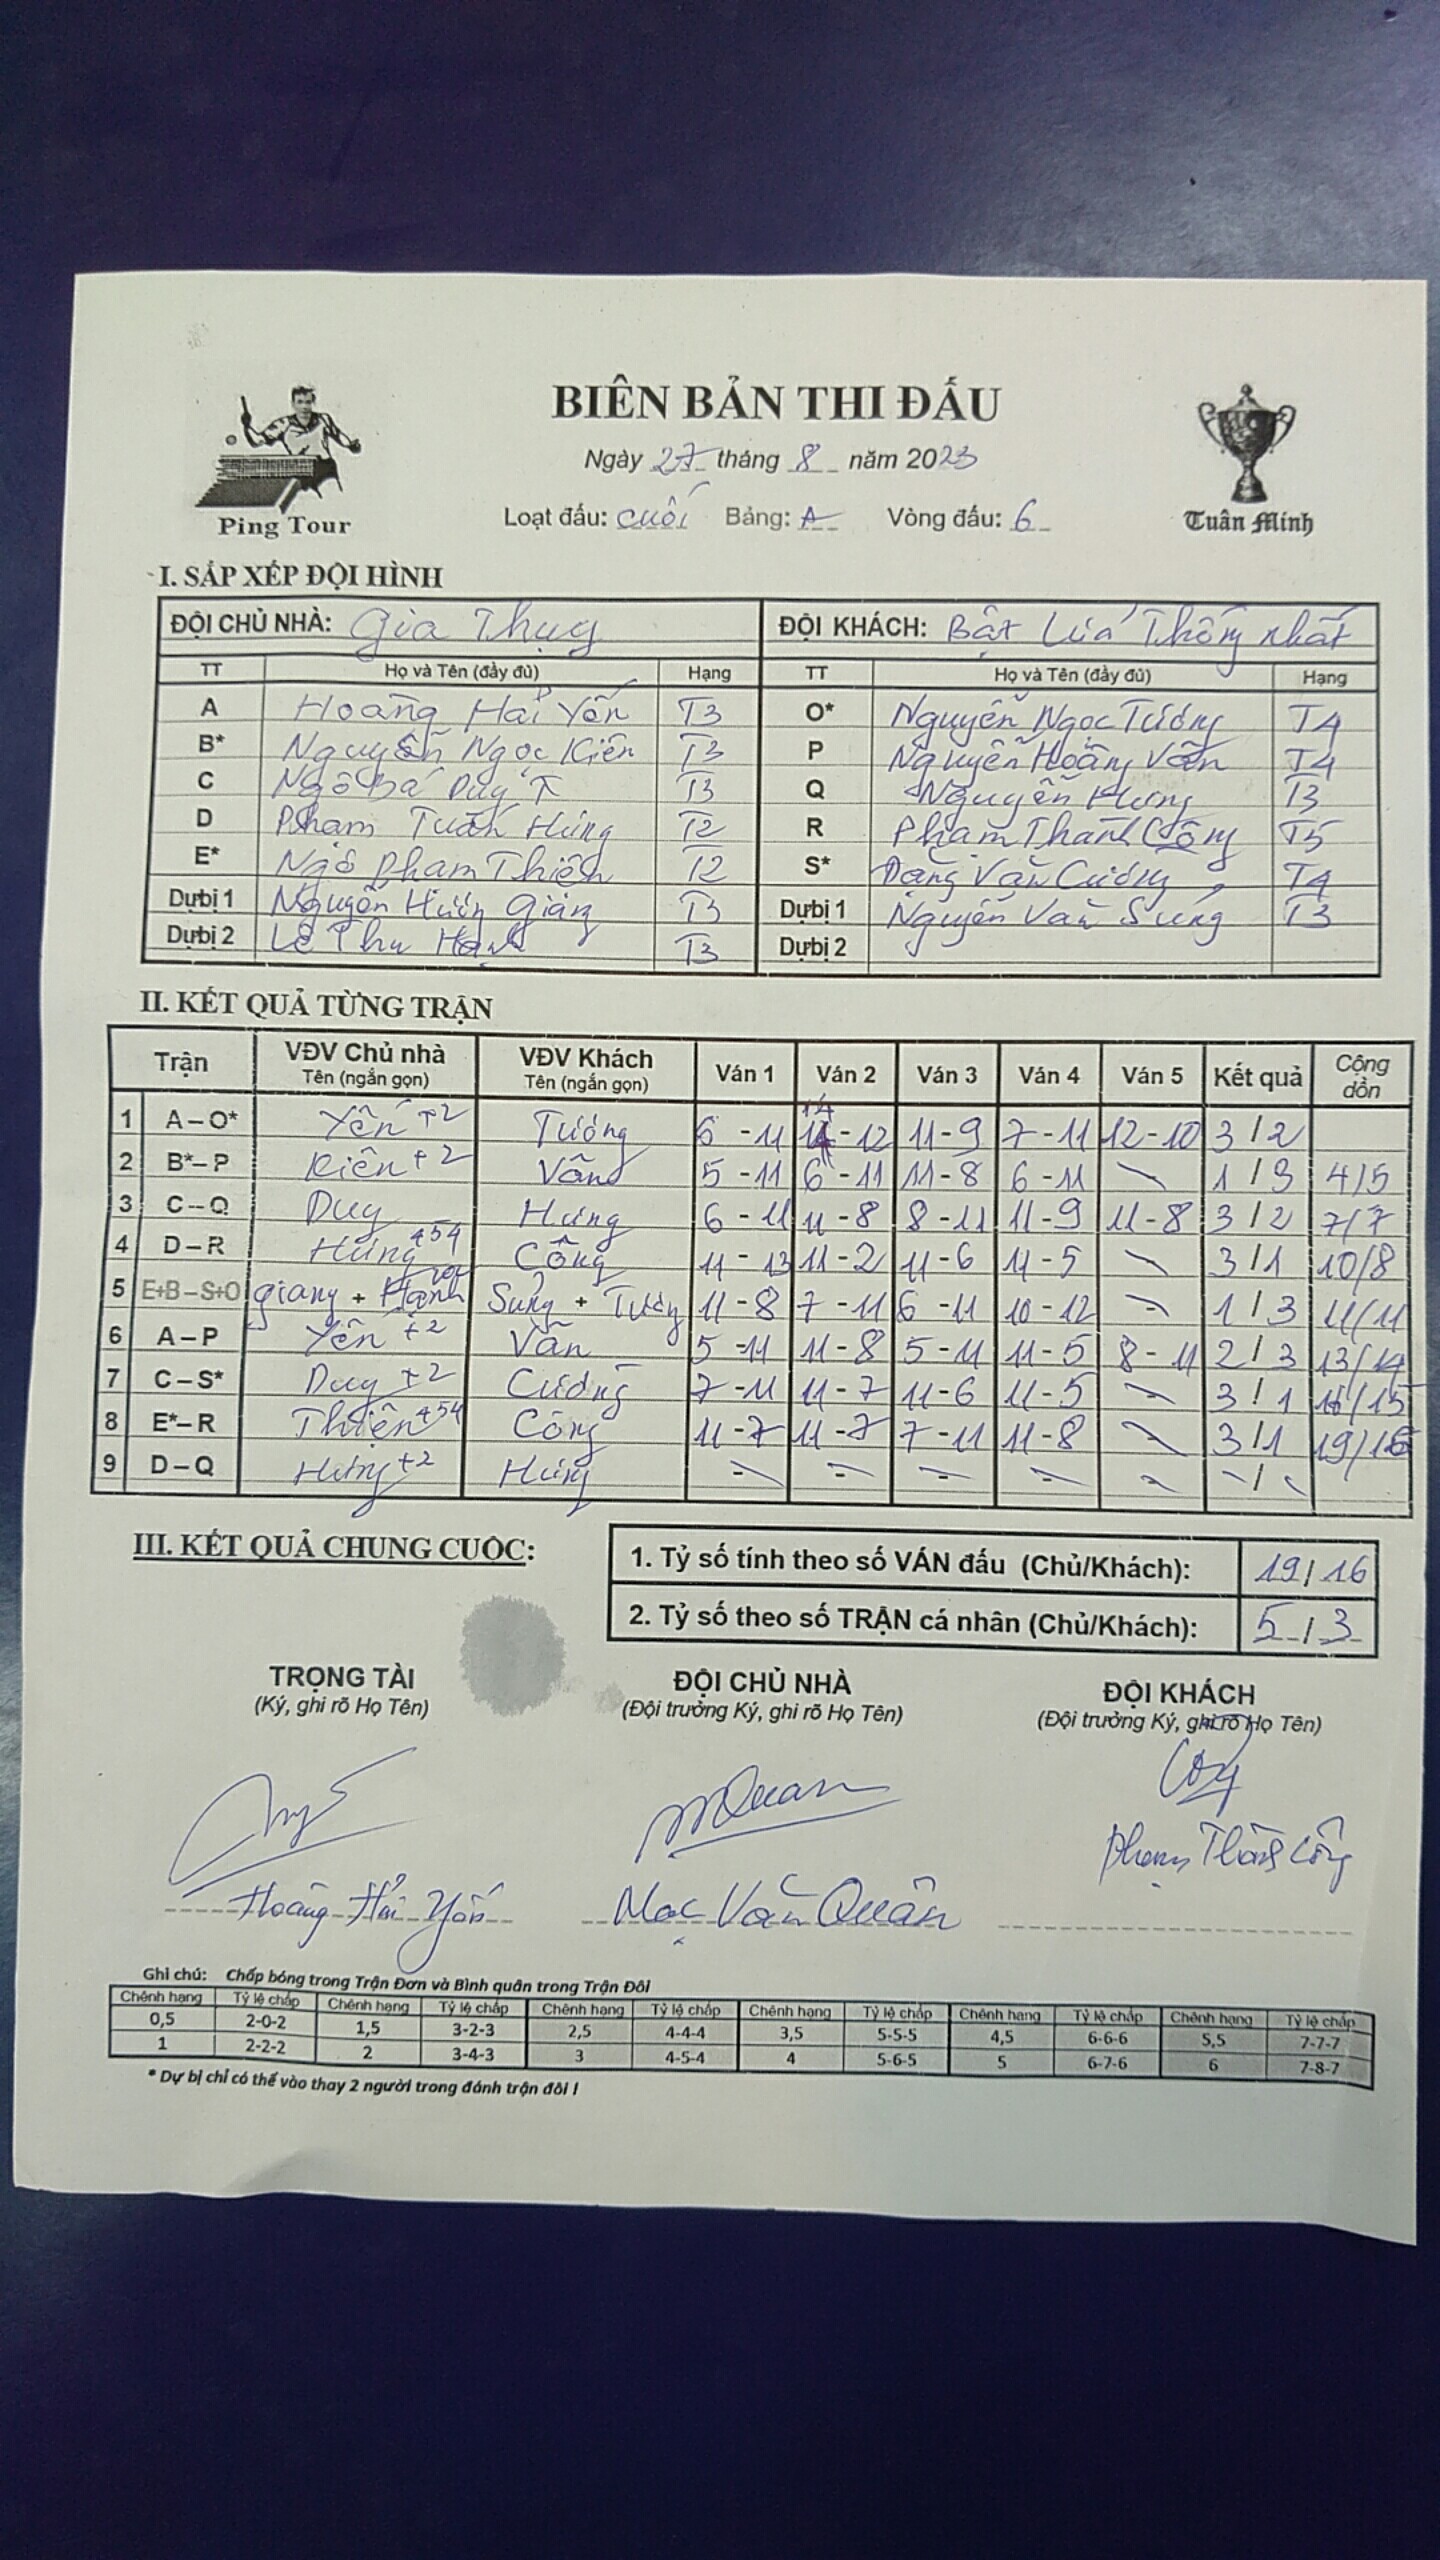 BIÊN BẢN THI ĐẤU
Ngày 27 tháng 8 năm 2023
Ping Tour
Loạt đấu: cuối Bảng: A Vòng đấu: 6
Tuân Minh
I. SẮP XẾP ĐỘI HÌNH
ĐỘI CHỦ NHÀ: Gia Thụy ĐỘI KHÁCH: Bật Lửa Thống nhất
TT Họ và Tên (đầy đủ) Hạng TT Họ và Tên (đầy đủ) Hạng
A Hoàng Hải Yến T3 O* Nguyễn Ngọc Tướng T4
B* Nguyễn Ngọc Kiên T3 P Nguyễn Hoàng Văn T4
C Ngô Bá Duy T3 Q Nguyễn Hưng T3
D Phạm Tuấn Hưng T2 R Phạm Thành Công T5
E* Ngô Phạm Thiện T2 S* Đặng Văn Cường T4
Dự bị 1 Nguyễn Hương Giang T3 Dự bị 1 Nguyễn Văn Sửng T3
Dự bị 2 Lê Thu Hạnh T3 Dự bị 2
II. KẾT QUẢ TỪNG TRẬN
Trận VĐV Chủ nhà VĐV Khách Ván 1 Ván 2 Ván 3 Ván 4 Ván 5 Kết quả Cộng dồn
Tên (ngắn gọn) Tên (ngắn gọn)
1 A – O* Yến +2 Tướng 6 - 11 14 - 12 11 - 9 7 - 11 12 - 10 3 / 2
2 B* – P Kiên +2 Văn 5 - 11 6 - 11 11 - 8 6 - 11 1 / 3 4/5
3 C – Q Duy Hưng 6 - 11 11 - 8 8 - 11 11 - 9 11 - 8 3 / 2 7/7
4 D – R Hưng 454 Công 11 - 13 11 - 2 11 - 6 11 - 5 3 / 1 10/8
5 E+B – S+O Giang + Hạnh Sửng + Tướng 11 - 8 7 - 11 6 - 11 10 - 12 1 / 3 11/11
6 A – P Yến +2 Văn 5 - 11 11 - 8 5 - 11 11 - 5 8 - 11 2 / 3 13/14
7 C – S* Duy +2 Cường 7 - 11 11 - 7 11 - 6 11 - 5 3 / 1 16/15
8 E* – R Thiện 454 Công 11 - 7 11 - 7 7 - 11 11 - 8 3 / 1 19/16
9 D – Q Hưng +2 Hưng - - - - - /
III. KẾT QUẢ CHUNG CUỘC:
1. Tỷ số tính theo số VÁN đấu (Chủ/Khách): 19 / 16
2. Tỷ số theo số TRẬN cá nhân (Chủ/Khách): 5 / 3
TRỌNG TÀI ĐỘI CHỦ NHÀ ĐỘI KHÁCH
(Ký, ghi rõ Họ Tên) (Đội trưởng Ký, ghi rõ Họ Tên) (Đội trưởng Ký, ghi rõ Họ Tên)
Phạm Thành Công
Hoàng Hải Yến Mạc Văn Quân
Ghi chú: Chấp bóng trong Trận Đơn và Bình quân trong Trận Đôi
Chênh hạng Tỷ lệ chấp Chênh hạng Tỷ lệ chấp Chênh hạng Tỷ lệ chấp Chênh hạng Tỷ lệ chấp Chênh hạng Tỷ lệ chấp Chênh hạng Tỷ lệ chấp
0,5 2-0-2 1,5 3-2-3 2,5 4-4-4 3,5 5-5-5 4,5 6-6-6 5,5 7-7-7
1 2-2-2 2 3-4-3 3 4-5-4 4 5-6-5 5 6-7-6 6 7-8-7
* Dự bị chỉ có thể vào thay 2 người trong đánh trận đôi !